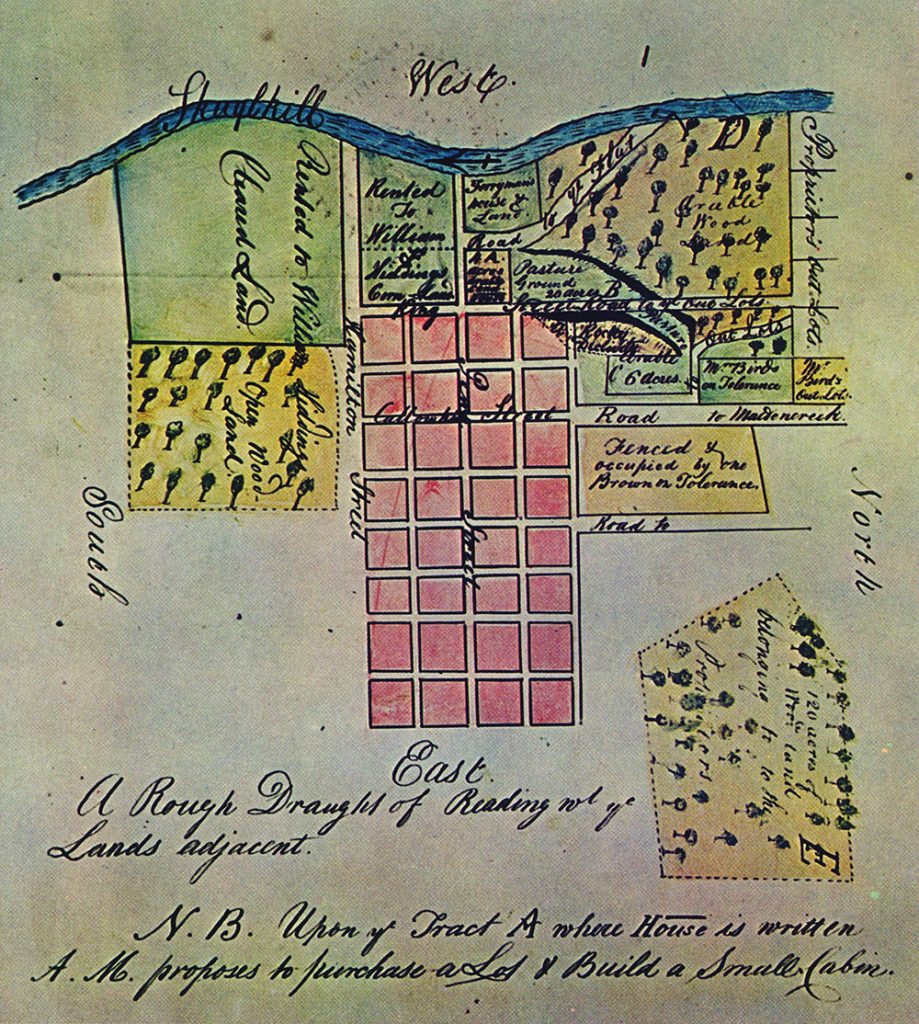 West.
Skuylkill
Rented to William Hiddings
Cleared Land.
Rented
To
William
Hiddings
Corn Land
Ferryman's
house &
Land
Road
D
Arable
Wood
Land
Proprietor's Out Lots.
A
acres
Pasture
Ground
20 acres B
Street Road to ye Out Lots.
King
Rocky
Arable
C 6 acres.
Out Lots
Mr. Birds
on Tolerance
Mr.
Bird's
Out Lot.
Open Wood
Land
Hamilton Street
Penn Street
Callowhill Street
Road to Maidencreek.
Fenced &
occupied by one
Brown on Tolerance.
Road to
South
North
120 acres of
Wood land
belonging to the
Proprietors
E
East.
A Rough Draught of Reading wt ye
Lands adjacent.
N. B. Upon ye Tract A where House is written
A. M. proposes to purchase a Lot & Build a Small Cabin.